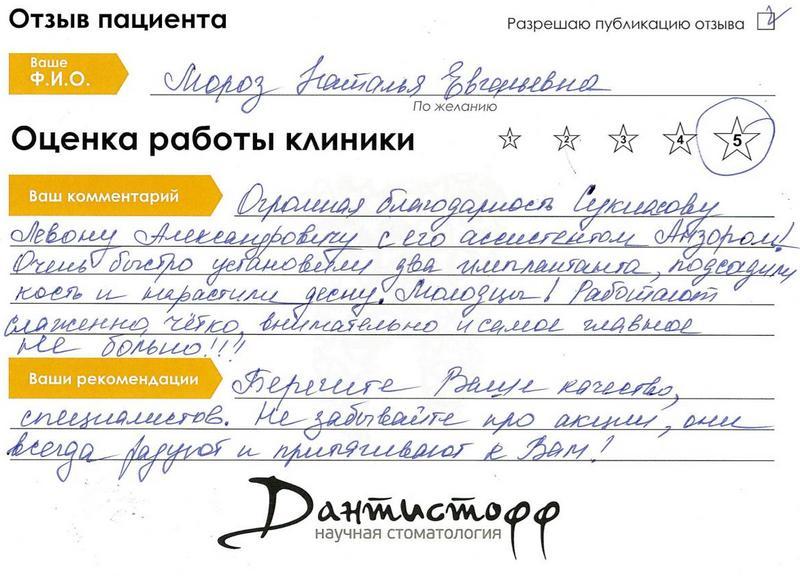 Отзыв пациента
Разрешаю публикацию отзыва
Ваше
Ф.И.О.
Мороз Наталья Евгеньевна
По желанию
Оценка работы клиники
1 2 3 4 5
Ваш комментарий
Огромная благодарность Сукиасову
Левону Александровичу с его ассистентом Анзором!
Очень быстро установили два имплантанта, подсадили
кость и нарастили десну. Молодцы! Работают
слаженно, чётко, внимательно и самое главное
не больно!!!
Ваши рекомендации
Берегите Ваше качество,
специалистов. Не забывайте про акции, они
всегда радуют и притягивают к Вам!
Дантистофф
научная стоматология